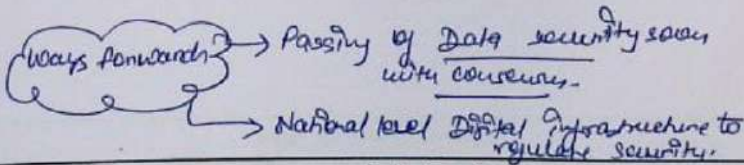 Ways forward → Passing of Data security soon
with consensus.
→ National level Digital Infrastructure to
regulate security.